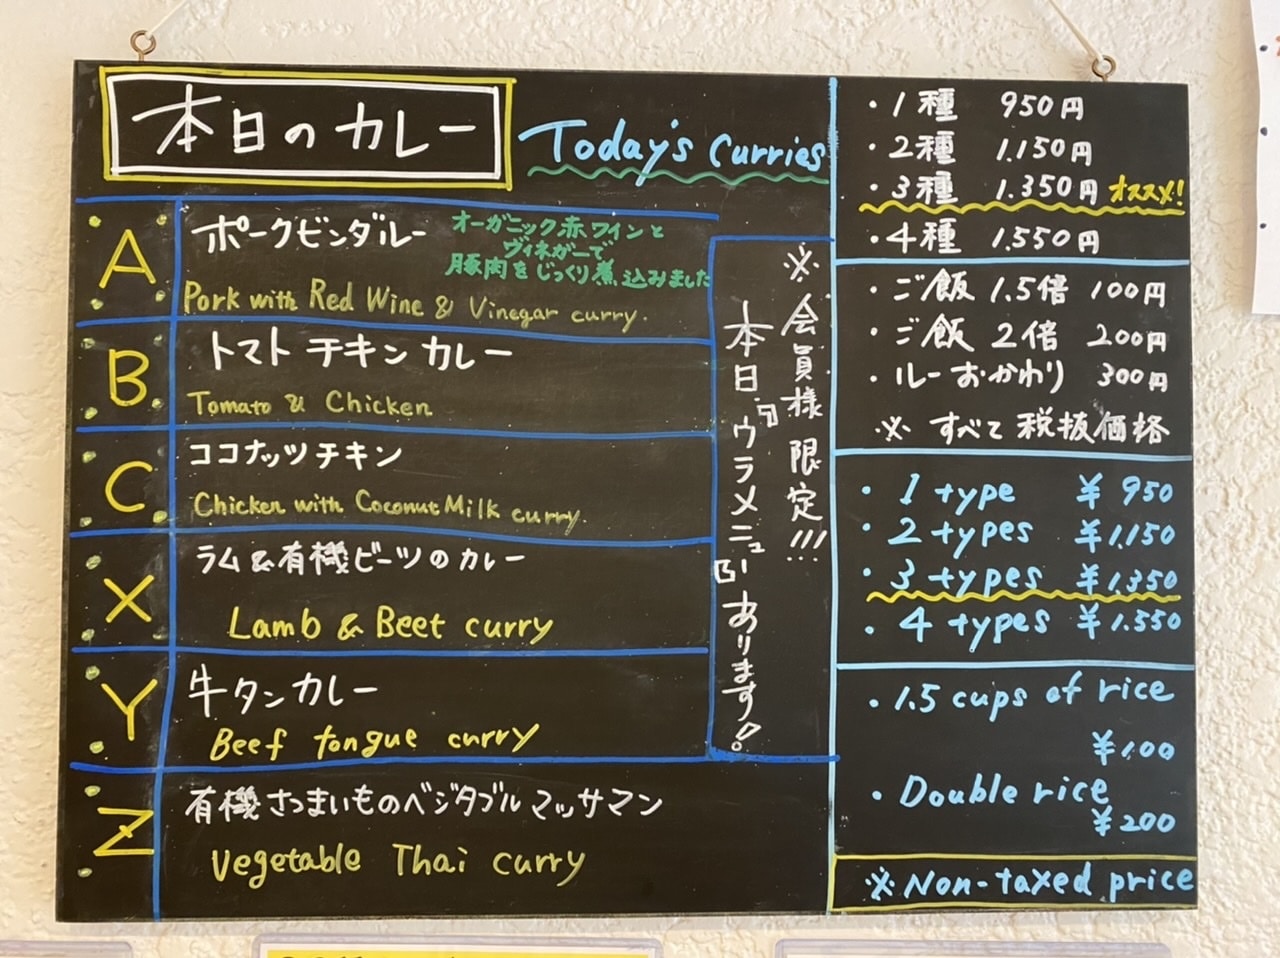 本日のカレー
Today's Curries
A
ポークビンダルー
オーガニック赤ワインと
ヴィネガーで
豚肉をじっくり煮込みました
Pork with Red Wine & Vinegar curry.
B
トマトチキンカレー
Tomato & Chicken
C
ココナッツチキン
Chicken with Coconut Milk curry.
X
ラム&有機ビーツのカレー
Lamb & Beet curry
Y
牛タンカレー
Beef tongue curry
Z
有機さつまいものベジタブルマッサマン
Vegetable Thai curry
※会員様限定!!!
本日『ウラメニュー』あります!
・1種 950円
・2種 1.150円
・3種 1.350円 オススメ!
・4種 1.550円
・ご飯 1.5倍 100円
・ご飯 2倍 200円
・ルーおかわり 300円
※すべて税抜価格
・1 type ¥950
・2 types ¥1.150
・3 types ¥1.350
・4 types ¥1.550
・1.5 cups of rice
¥100
・Double rice
¥200
※Non-taxed price